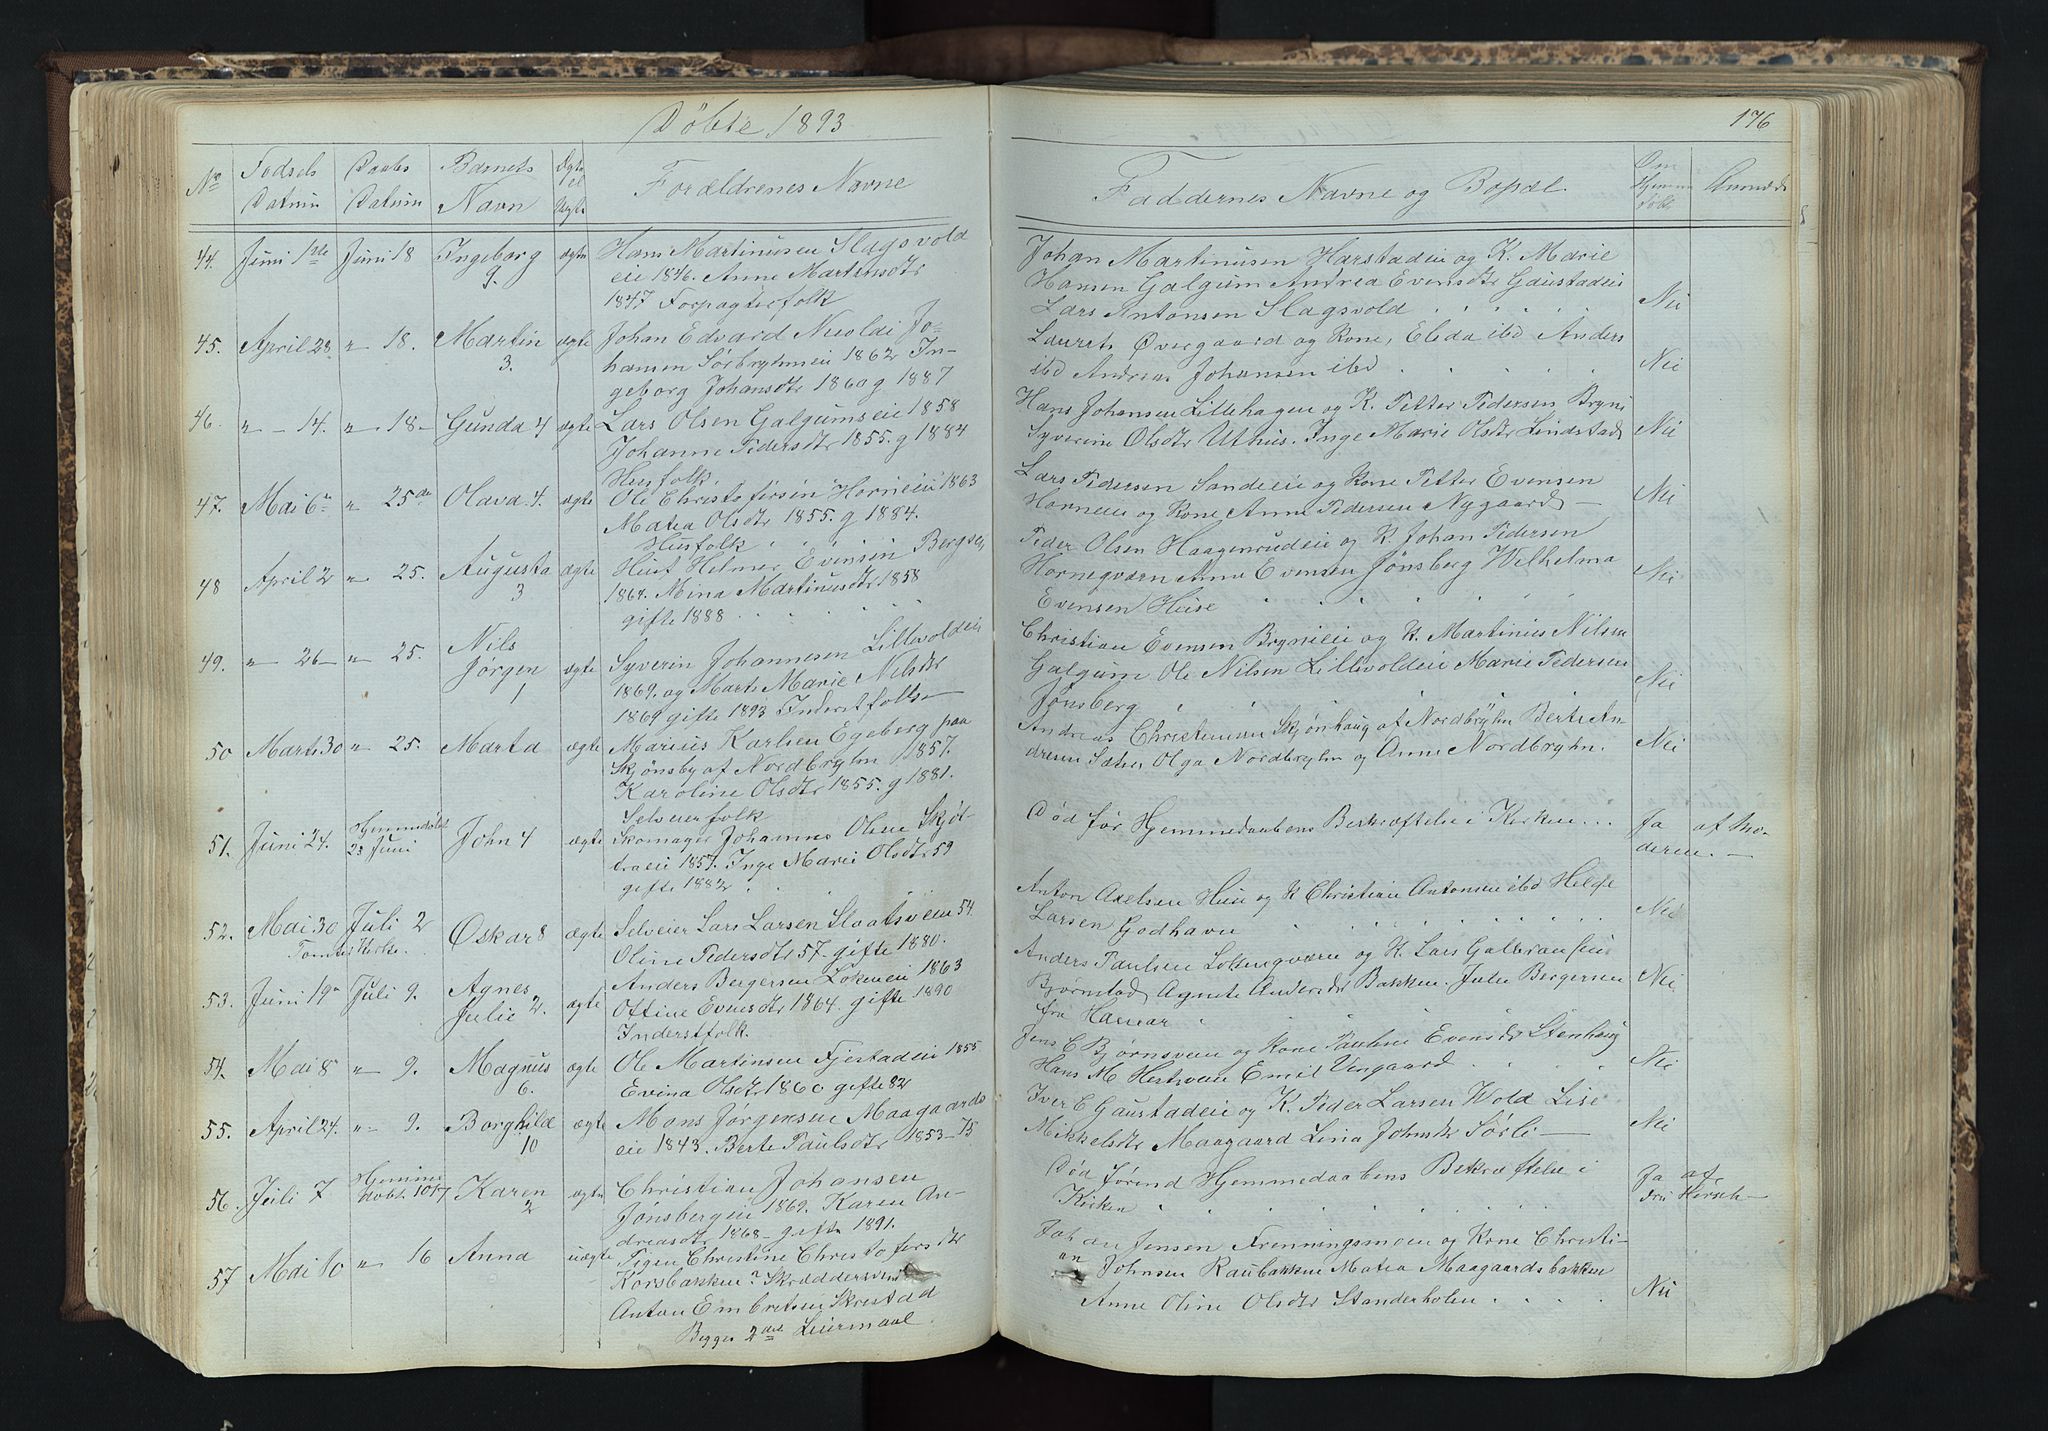 Döbte 1893
176
No
Födsels Datum
Daabs Datum
Barnets Navn
Ægte el Uægte
Forældrenes Navne
Faddernes Navne og Bopæl.
Om Hjemme döbt
44. Juni 1ste Juni 18 Ingeborg 9. ægte Hans Martinusen Slagsvold
eie 1846. Anne Martinsdtr
1847 Forpagterfolk
Johan Martinusen Harstadeie og K. Marie
Hansen Galgum Andrea Evensdtr Gaustadeie
Lars Antonsen Slagsvold Nei
45. April 28 " 18. Martin 3. ægte Johan Edvard Nicolai Jo-
hansen Sörbryhneie 1862 In-
geborg Johansdtr 1860 g 1887
Laurits Övergaard og Kone, Elida ibd Anders
ibd Andreas Johansen ibd Nei
46. " 14. " 18 Gunda 4 ægte Lars Olsen Galgumseie 1858
Johanne Pedersdtr 1855. g 1884
Husfolk.
Hans Johansen Lillehagen og K. Petter Pedersen Bryni
Syverine Olsdtr Uthus. Inge Marie Olsdtr Lindstad Nei
47. Mai 6te " 25de Olava. 4. ægte Ole Christofersen Horneeie 1863
Matea Olsdtr 1855. g 1884.
Husfolk
Lars Pedersen Sandeeie og Kone Petter Evensen
Horneeie og Kone Anne Pedersen Nygaard — Nei
48 April 2 " 25. Augusta 3 ægte Husf Helmer Evensen Bergseie
1864. Mina Martinusdtr 1858
gifte 1888
Peder Olsen Haagenrudeie og K. Johan Pedersen
Hornegværn Anne Evensen Jönsberg Wilhelma
Evensen Huse Nei
49. " 26 " 25. Nils Jörgen 1 ægte Syverin Johannesen Lillevoldeie
1869. og Marte Marie Nilsdtr
1869 gifte 1893 Inderstfolk
Christian Evensen Brynieie og K. Martinius Nilsen
Galgum Ole Nilsen Lillevoldeie Marie Pedersen
Jönsberg Nei
50 Marts 30 " 25. Marta ægte Marius Karlsen Egeberg paa
Skjönsby af Nordbryhn 1857.
Karoline Olsdtr 1855. g 1881.
Selveierfolk
Andreas Christiansen Skjönhaug af Nordbryhn Berte An
dresen Sæter Olga Nordbryhn og Anne Nordbryhn. Nei
51. Juni 24. Hjemmedöbt 25 Juni John 4 ægte Skomager Johannes Olsen Skjöl-
eraeie 1857. Inge Marie Olsdtr 59
gifte 1882
Död för Hjemmedaabens Bekræftelse i Kirken Ja af Mo-
deren. —
52. Mai 30 Juli 2 Tomter Kirke. Oskar 8 ægte Selveier Lars Larsen Slaatsveen 54.
Oline Pedersdtr 57. gifte 1880.
Anton Axelsen Huse og K Christian Antonsen ibd Helge
Larsen Godhavn Nei
53. Juni 19de Juli 9. Agnes Julie 2. ægte Anders Bergersen Lökeneie 1863
Ottine Evensdtr 1864. gifte 1890
Inderstfolk.
Anders Paulsen Lökengværn og K. Lars Galteran
Bjornstad Agnete Andersdtr Bakken. Julie Bergersen
fra Hamar Nei
54. Mai 8 " 9. Magnus 6. ægte Ole Martinsen Fjestadeie 1855
Evina Olsdtr 1860 gifte 82
Jens C Björnsveen og Kone Pauline Evensdtr Stenhaug
Hans M Hestsveen Emil Vengaard Nei
55. April 24. " 9. Borghild 10 ægte Mons Jörgensen Maagaards
eie 1843. Berte Paulsdtr 1853–75
Iver E Gaustadeie og K. Peder Larsen Wold Lise
Mikkelsdtr Maagaard Lina Johnsdtr Sörli — Nei
56. Juli 7 Hjemme döbt 10/7 Karen 2 ægte Christian Johansen
Jönsbergeie 1869. Karen An-
dreasdtr 1868 – gifte 1891.
Död förend Hjemmedaabens Bekræftelse i
Kirken Ja af
Fru Hersch —
57 Mai 10 " 16 Anna uægte Pigen Christine Christofersdtr
Korsbakken Skræddersvend
Anton Embretsen Skrestad
Begges 2det Leiermaal.
Johan Jensen Frenningsmoen og Kone Christi-
an Johnsen Raubakken Matea Maagaardsbakken
Anne Oline Olsdtr Standerholen Nei